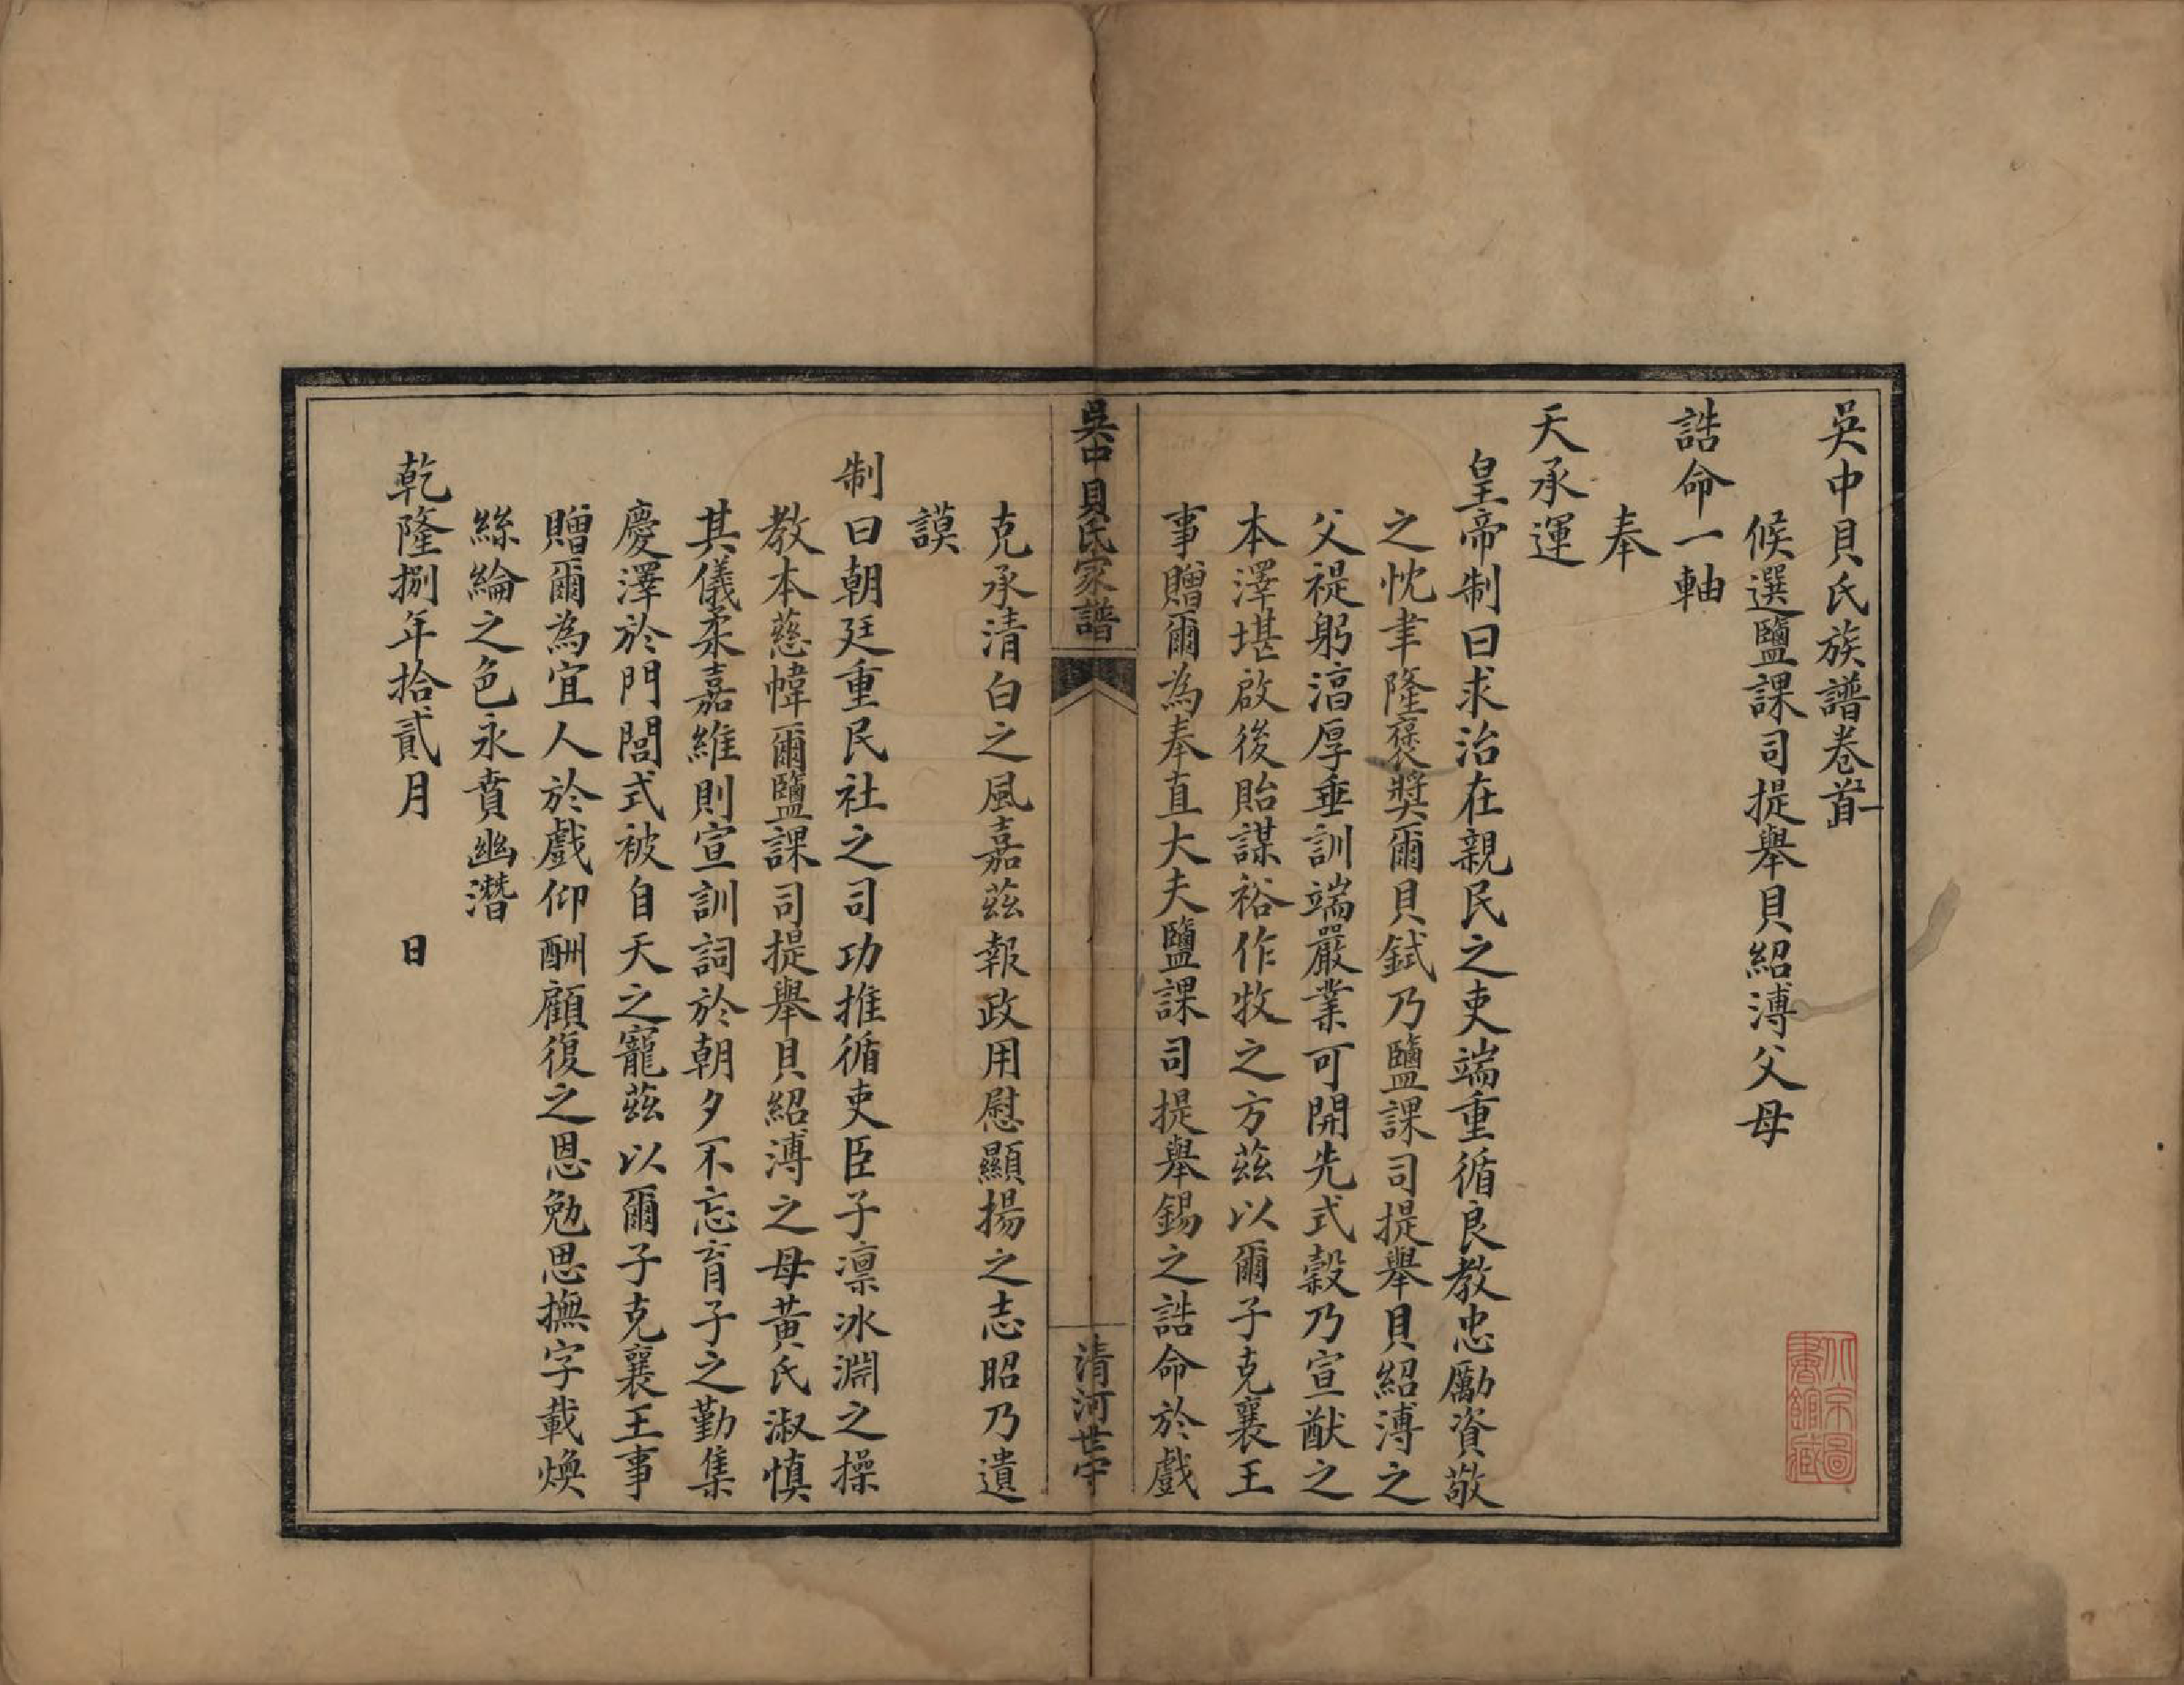 吳中貝氏族譜卷首一
候選鹽課司提舉貝紹溥父母
誥命一軸
奉
天承運
皇帝制曰求治在親民之吏端重循良教忠勵資敬
之忱聿隆褒獎爾貝鉽乃鹽課司提舉貝紹溥之
父禔躬湻厚垂訓端嚴業可開先式穀乃宣猷之
本澤堪啟後貽謀裕作牧之方茲以爾子克襄王
事贈爾為奉直大夫鹽課司提舉錫之誥命於戲
吳中貝氏家譜
清河世守
克承清白之風嘉茲報政用慰顯揚之志昭乃遺
謨
制曰朝廷重民社之司功推循吏臣子凛冰淵之操
教本慈幃爾鹽課司提舉貝紹溥之母黃氏淑慎
其儀柔嘉維則宣訓詞於朝夕不忘育子之勤集
慶澤於門閭式被自天之寵茲以爾子克襄王事
贈爾為宜人於戲仰酬顧復之恩勉思撫字載煥
絲綸之色永賁幽潛
乾隆捌年拾貳月 日